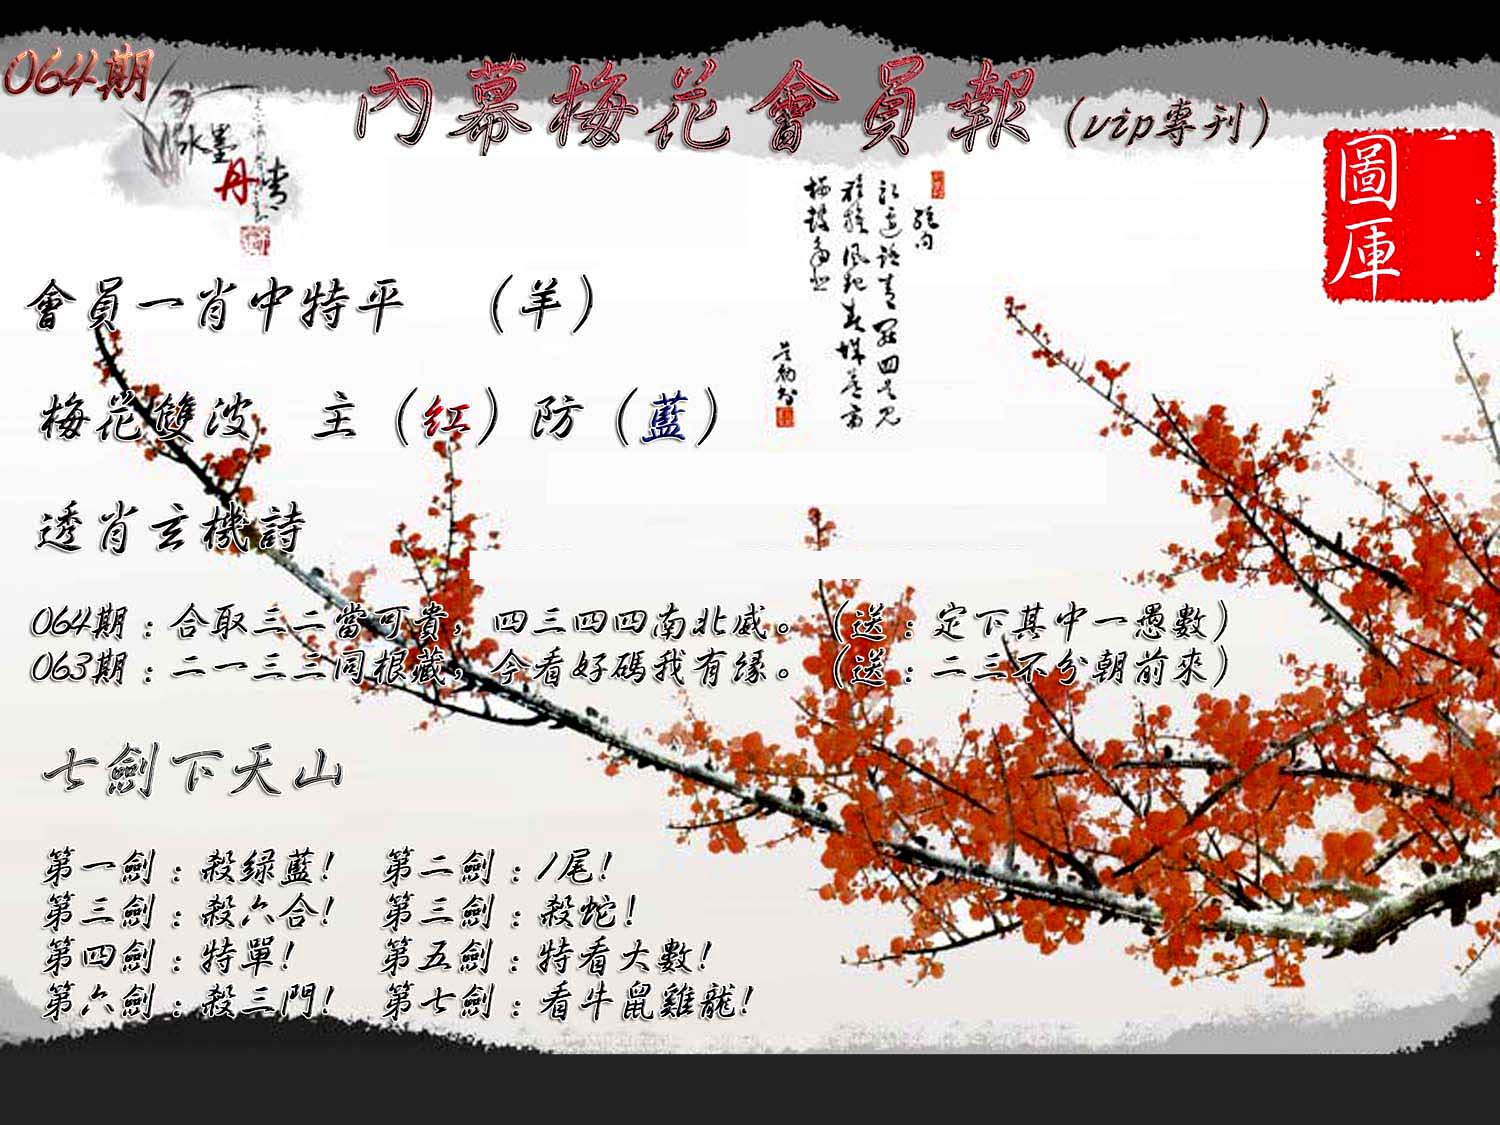 064期
內幕梅花會員報（vip專刊）
水墨
丹青
圖庫
會員一肖中特平　（羊）
梅花雙波　主（紅）防（藍）
透肖玄機詩
064期：合取三二當可貴，四三四四南北威。（送：定下其中一愚數）
063期：二一三三同根藏，今看好碼我有緣。（送：二三不分朝前來）
七劍下天山
第一劍：殺绿藍！　第二劍：1尾！
第三劍：殺六合！　第三劍：殺蛇！
第四劍：特單！　第五劍：特看大數！
第六劍：殺三門！　第七劍：看牛鼠雞龍！